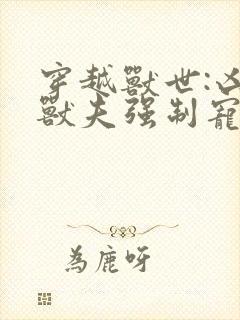 穿越獸世:凶
獸夫强制寵
為鹿呀